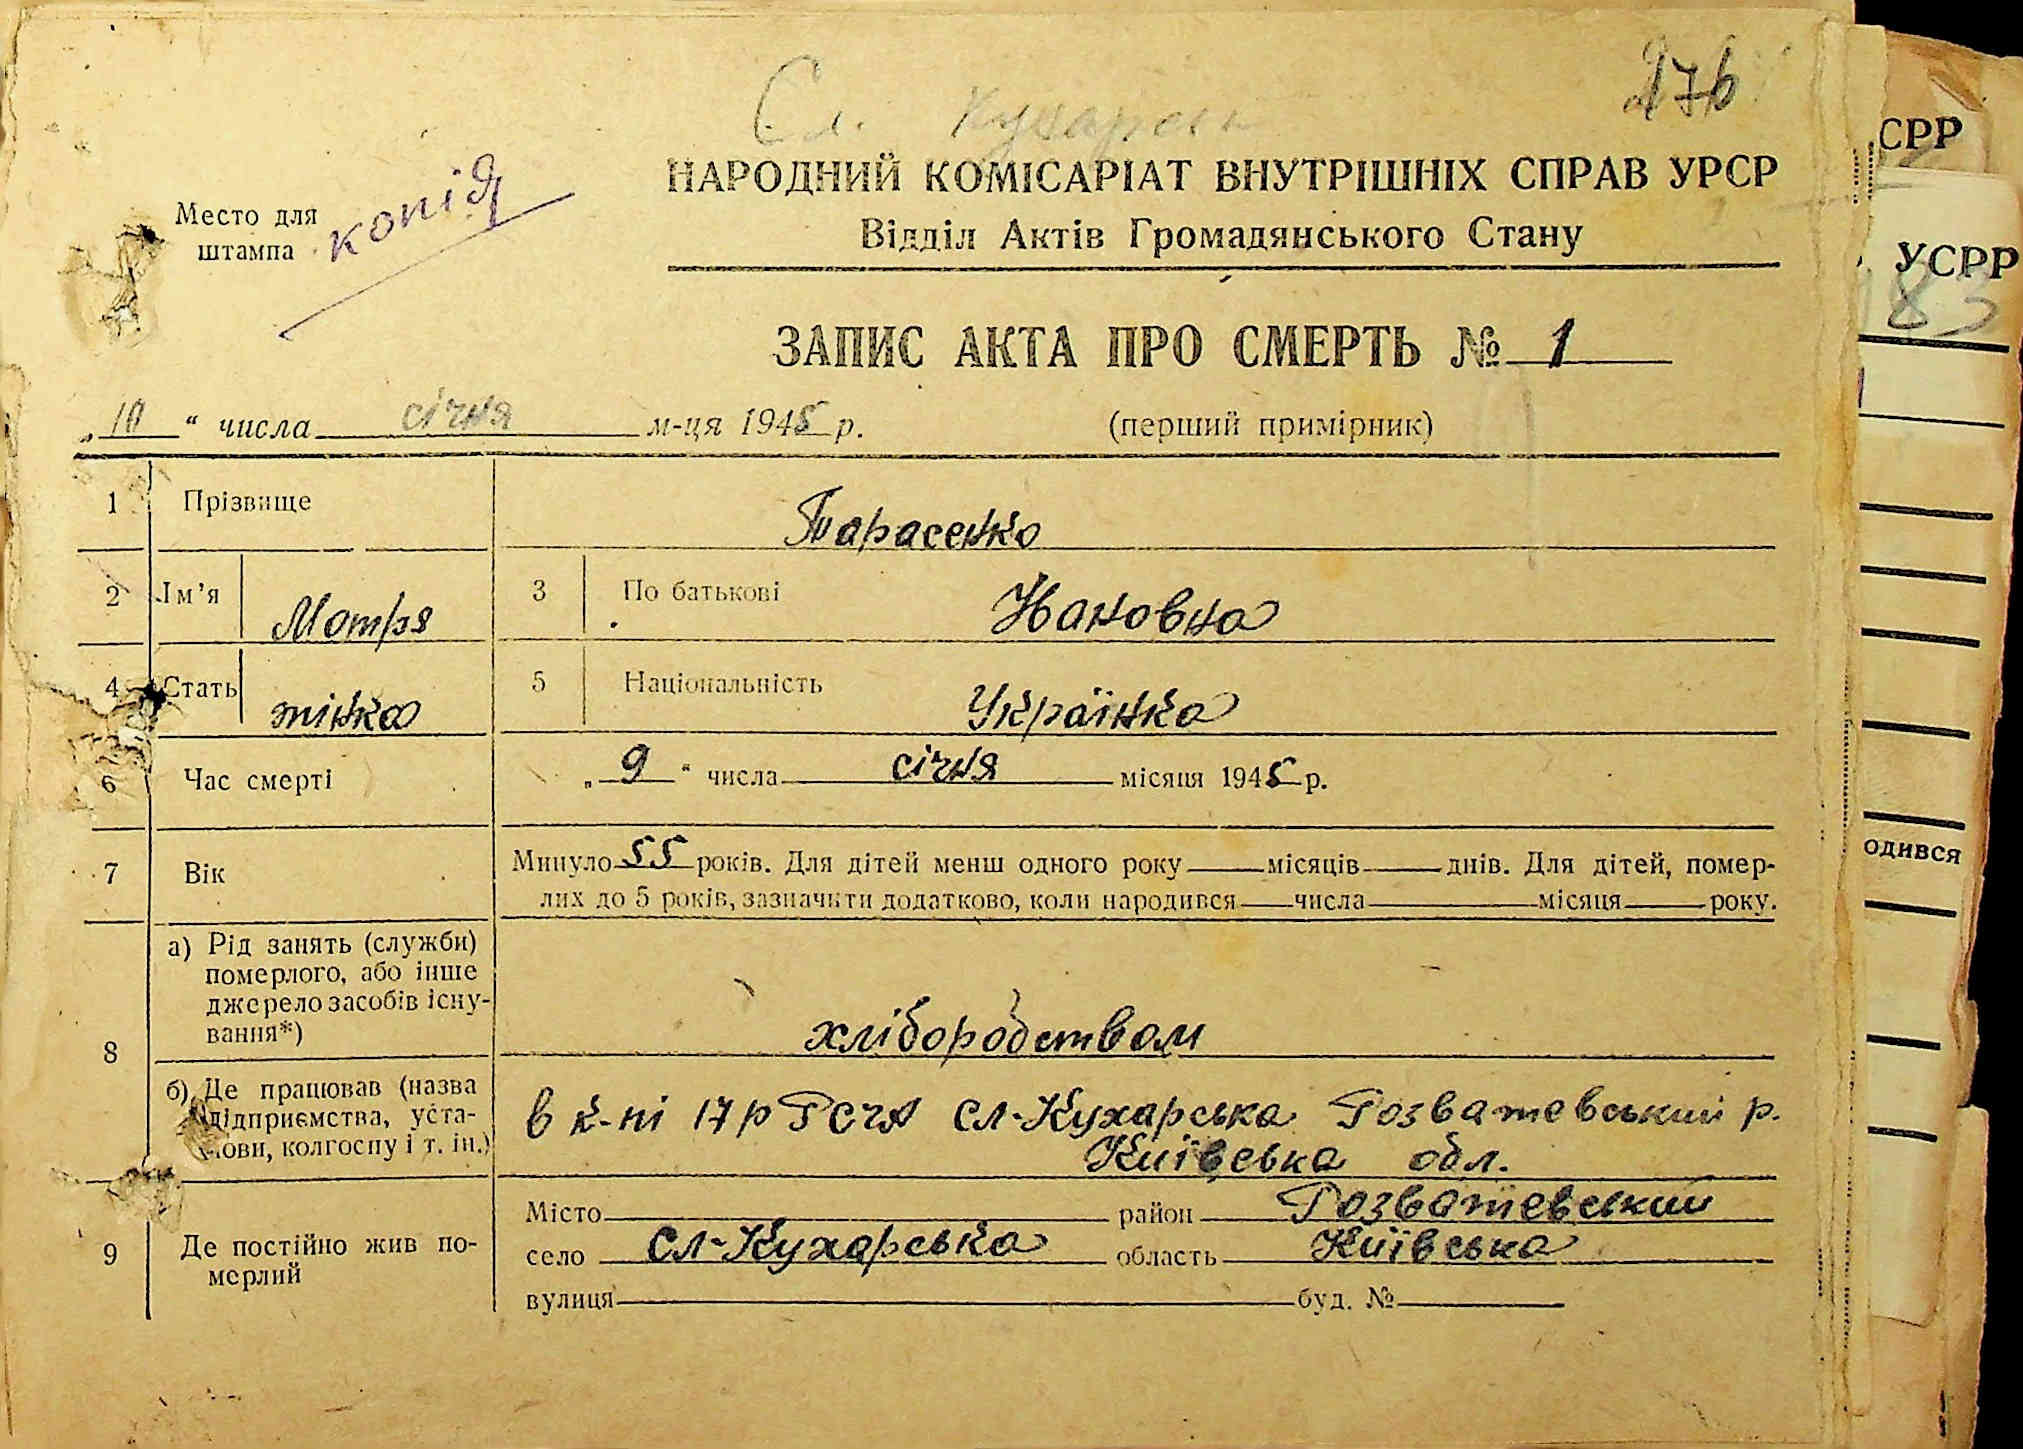 Сл. Кухарськ
276
НАРОДНИЙ КОМІСАРІАТ ВНУТРІШНІХ СПРАВ УРСР
Відділ Актів Громадянського Стану
Место для
штампа
копія
ЗАПИС АКТА ПРО СМЕРТЬ № 1
„10“ числа січня м-ця 1945 р. (перший примірник)
1 Прізвище Тарасенко
2 Ім'я Мотря 3 По батькові Івановна
4 Стать жінка 5 Національність Українка
6 Час смерті „9“ числа січня місяця 1945 р.
7 Вік Минуло 55 років. Для дітей менш одного року місяців днів. Для дітей, помер-
лих до 5 років, зазначити додатково, коли народився числа місяця року.
8 а) Рід занять (служби)
померлого, або інше
джерело засобів існу-
вання*) хліборобством
б) Де працював (назва
підприємства, уста-
нови, колгоспу і т. ін.)
в к-пі 17 р РСЧА сл-Кухарська Розважевський р.
Київська обл.
9 Де постійно жив по-
мерлий
Місто район Розважевський
село сл-Кухарська область Київська
вулиця буд. №
СРР
УСРР
183
одився